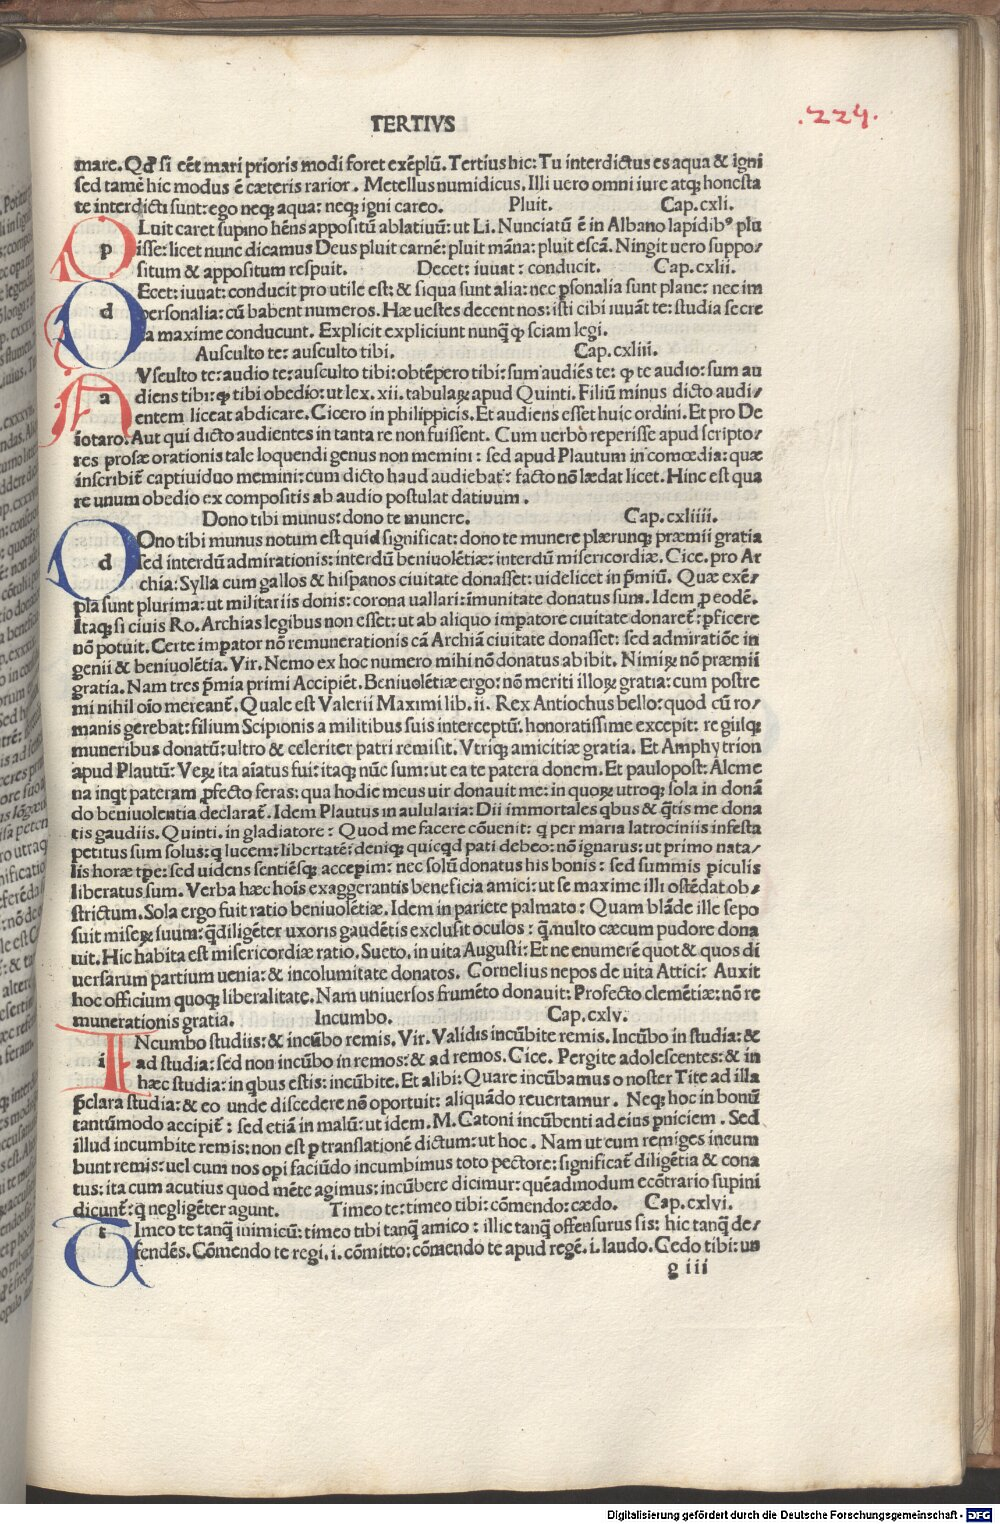 TERTIVS
.224.
mare. Qđ si eēt mari prioris modi foret exēplū. Tertius hic: Tu interdictus es aqua & igni
sed tamē hic modus ē cæteris rarior. Metellus numidicus. Illi uero omni iure atqꝫ honesta
te interdicti sunt: ego neqꝫ aqua: neqꝫ igni careo. Pluit. Cap.cxli.
p Luit caret supino hēns appositū ablatiuū: ut Li. Nunciatū ē in Albano lapidibꝰ plu
isse: licet nunc dicamus Deus pluit carnē: pluit māna: pluit escā. Ningit uero suppo/
situm & appositum respuit. Decet: iuuat: conducit. Cap.cxlii.
d Ecet: iuuat: conducit pro utile est: & siqua sunt alia: nec ꝑsonalia sunt plane: nec im
personalia: cū habent numeros. Hæ uestes decent nos: isti cibi iuuāt te: studia secre
ta maxime conducunt. Explicit expliciunt nunq̄ ꝙ sciam legi.
Ausculto te: ausculto tibi. Cap.cxliii.
a Vsculto te: audio te: ausculto tibi: obtēpero tibi: sum audiēs te: ꝙ te audio: sum au
diens tibi: ꝙ tibi obedio: ut lex. xii. tabulaꝝ apud Quinti. Filiū minus dicto audi/
entem liceat abdicare. Cicero in philippicis. Et audiens esset huic ordini. Et pro De
iotaro. Aut qui dicto audientes in tanta re non fuissent. Cum uerbo reperisse apud scripto/
res prosæ orationis tale loquendi genus non memini: sed apud Plautum in comœdia: quæ
inscribit̄ captiuiduo memini: cum dicto haud audiebat: facto nō lædat licet. Hinc est qua
re unum obedio ex compositis ab audio postulat datiuum.
Dono tibi munus: dono te munere. Cap.cxliiii.
d Ono tibi munus notum est quid significat: dono te munere plærunqꝫ præmii gratia
sed interdū admirationis: interdū beniuolētiæ: interdū misericordiæ. Cice. pro Ar
chia: Sylla cum gallos & hispanos ciuitate donasset: uidelicet in p̄miū. Quæ exē/
pla sunt plurima: ut militariis donis: corona uallari: īmunitate donatus sum. Idem ꝓ eodē.
Itaqꝫ si ciuis Ro. Archias legibus non esset: ut ab aliquo impatore ciuitate donaret̄: ꝑficere
nō potuit. Certe impator nō remunerationis cā Archiā ciuitate donasset: sed admiratiōe in
genii & beniuolētia. Vir. Nemo ex hoc numero mihi nō donatus abibit. Nimiꝝ nō præmii
gratia. Nam tres p̄mia primi Accipiēt. Beniuolētiæ ergo: nō meriti illoꝝ gratia: cum postre
mi nihil oīo mereant̄. Quale est Valerii Maximi lib. ii. Rex Antiochus bello: quod cū ro/
manis gerebat: filium Scipionis a militibus suis interceptū: honoratissime excepit: regiisqꝫ
muneribus donatū: ultro & celeriter patri remisit. Vtriqꝫ amicitiæ gratia. Et Amphytrion
apud Plautū: Veꝝ ita aīatus fui: itaqꝫ nūc sum: ut ea te patera donem. Et paulopost: Alcme
na inqt pateram ꝓfecto feras: qua hodie meus uir donauit me: in quoꝝ utroqꝫ sola in donā
do beniuolentia declarat̄. Idem Plautus in aulularia: Dii immortales qbus & q̄tis me dona
tis gaudiis. Quinti. in gladiatore: Quod me facere cōuenit: q per maria latrociniis infesta
petitus sum solus: q lucem: libertatē: deniqꝫ quicqd pati debeo: nō ignarus: ut primo nata/
lis horæ tp̄e: sed uidens sentiēsqꝫ accepim: nec solū donatus his bonis: sed summis piculis
liberatus sum. Verba hæc hoīs exaggerantis beneficia amici: ut se maxime illi ostēdat ob/
strictum. Sola ergo fuit ratio beniuolētiæ. Idem in pariete palmato: Quam blāde ille sepo
suit miseꝝ suum: q̄ diligēter uxoris gaudētis exclusit oculos: q̄ multo cæcum pudore dona
uit. Hic habita est misericordiæ ratio. Sueto. in uita Augusti: Et ne enumerē quot & quos di
uersarum partium uenia: & incolumitate donatos. Cornelius nepos de uita Attici: Auxit
hoc officium quoqꝫ liberalitate. Nam uniuersos frumēto donauit: Profecto clemētiæ: nō re
munerationis gratia. Incumbo. Cap.cxlv.
i Ncumbo studiis: & incūbo remis. Vir. Validis incūbite remis. Incūbo in studia: &
ad studia: sed non incūbo in remos: & ad remos. Cice. Pergite adolescentes: & in
hæc studia: in qbus estis: incūbite. Et alibi: Quare incūbamus o noster Tite ad illa
p̄clara studia: & eo unde discedere nō oportuit: aliquādo reuertamur. Neqꝫ hoc in bonū
tantūmodo accipit̄: sed etiā in malū: ut idem. M. Catoni incūbenti ad eius ꝑniciem. Sed
illud incumbite remis: non est ꝑ translationē dictum: ut hoc. Nam ut cum remiges incum
bunt remis: uel cum nos opi faciūdo incumbimus toto pectore: significat̄ diligētia & cona
tus: ita cum acutius quod mēte agimus: incūbere dicimur: quēadmodum ecōtrario supini
dicunt̄: q negligēter agunt. Timeo te: timeo tibi: cōmendo: cædo. Cap.cxlvi.
t Imeo te tanq̄ inimicū: timeo tibi tanq̄ amico: illic tanq̄ offensurus sis: hic tanq̄ de/
fendēs. Cōmendo te regi. i. cōmitto: cōmendo te apud regē. i. laudo. Cedo tibi: un
g iii
Digitalisierung gefördert durch die Deutsche Forschungsgemeinschaft - DFG